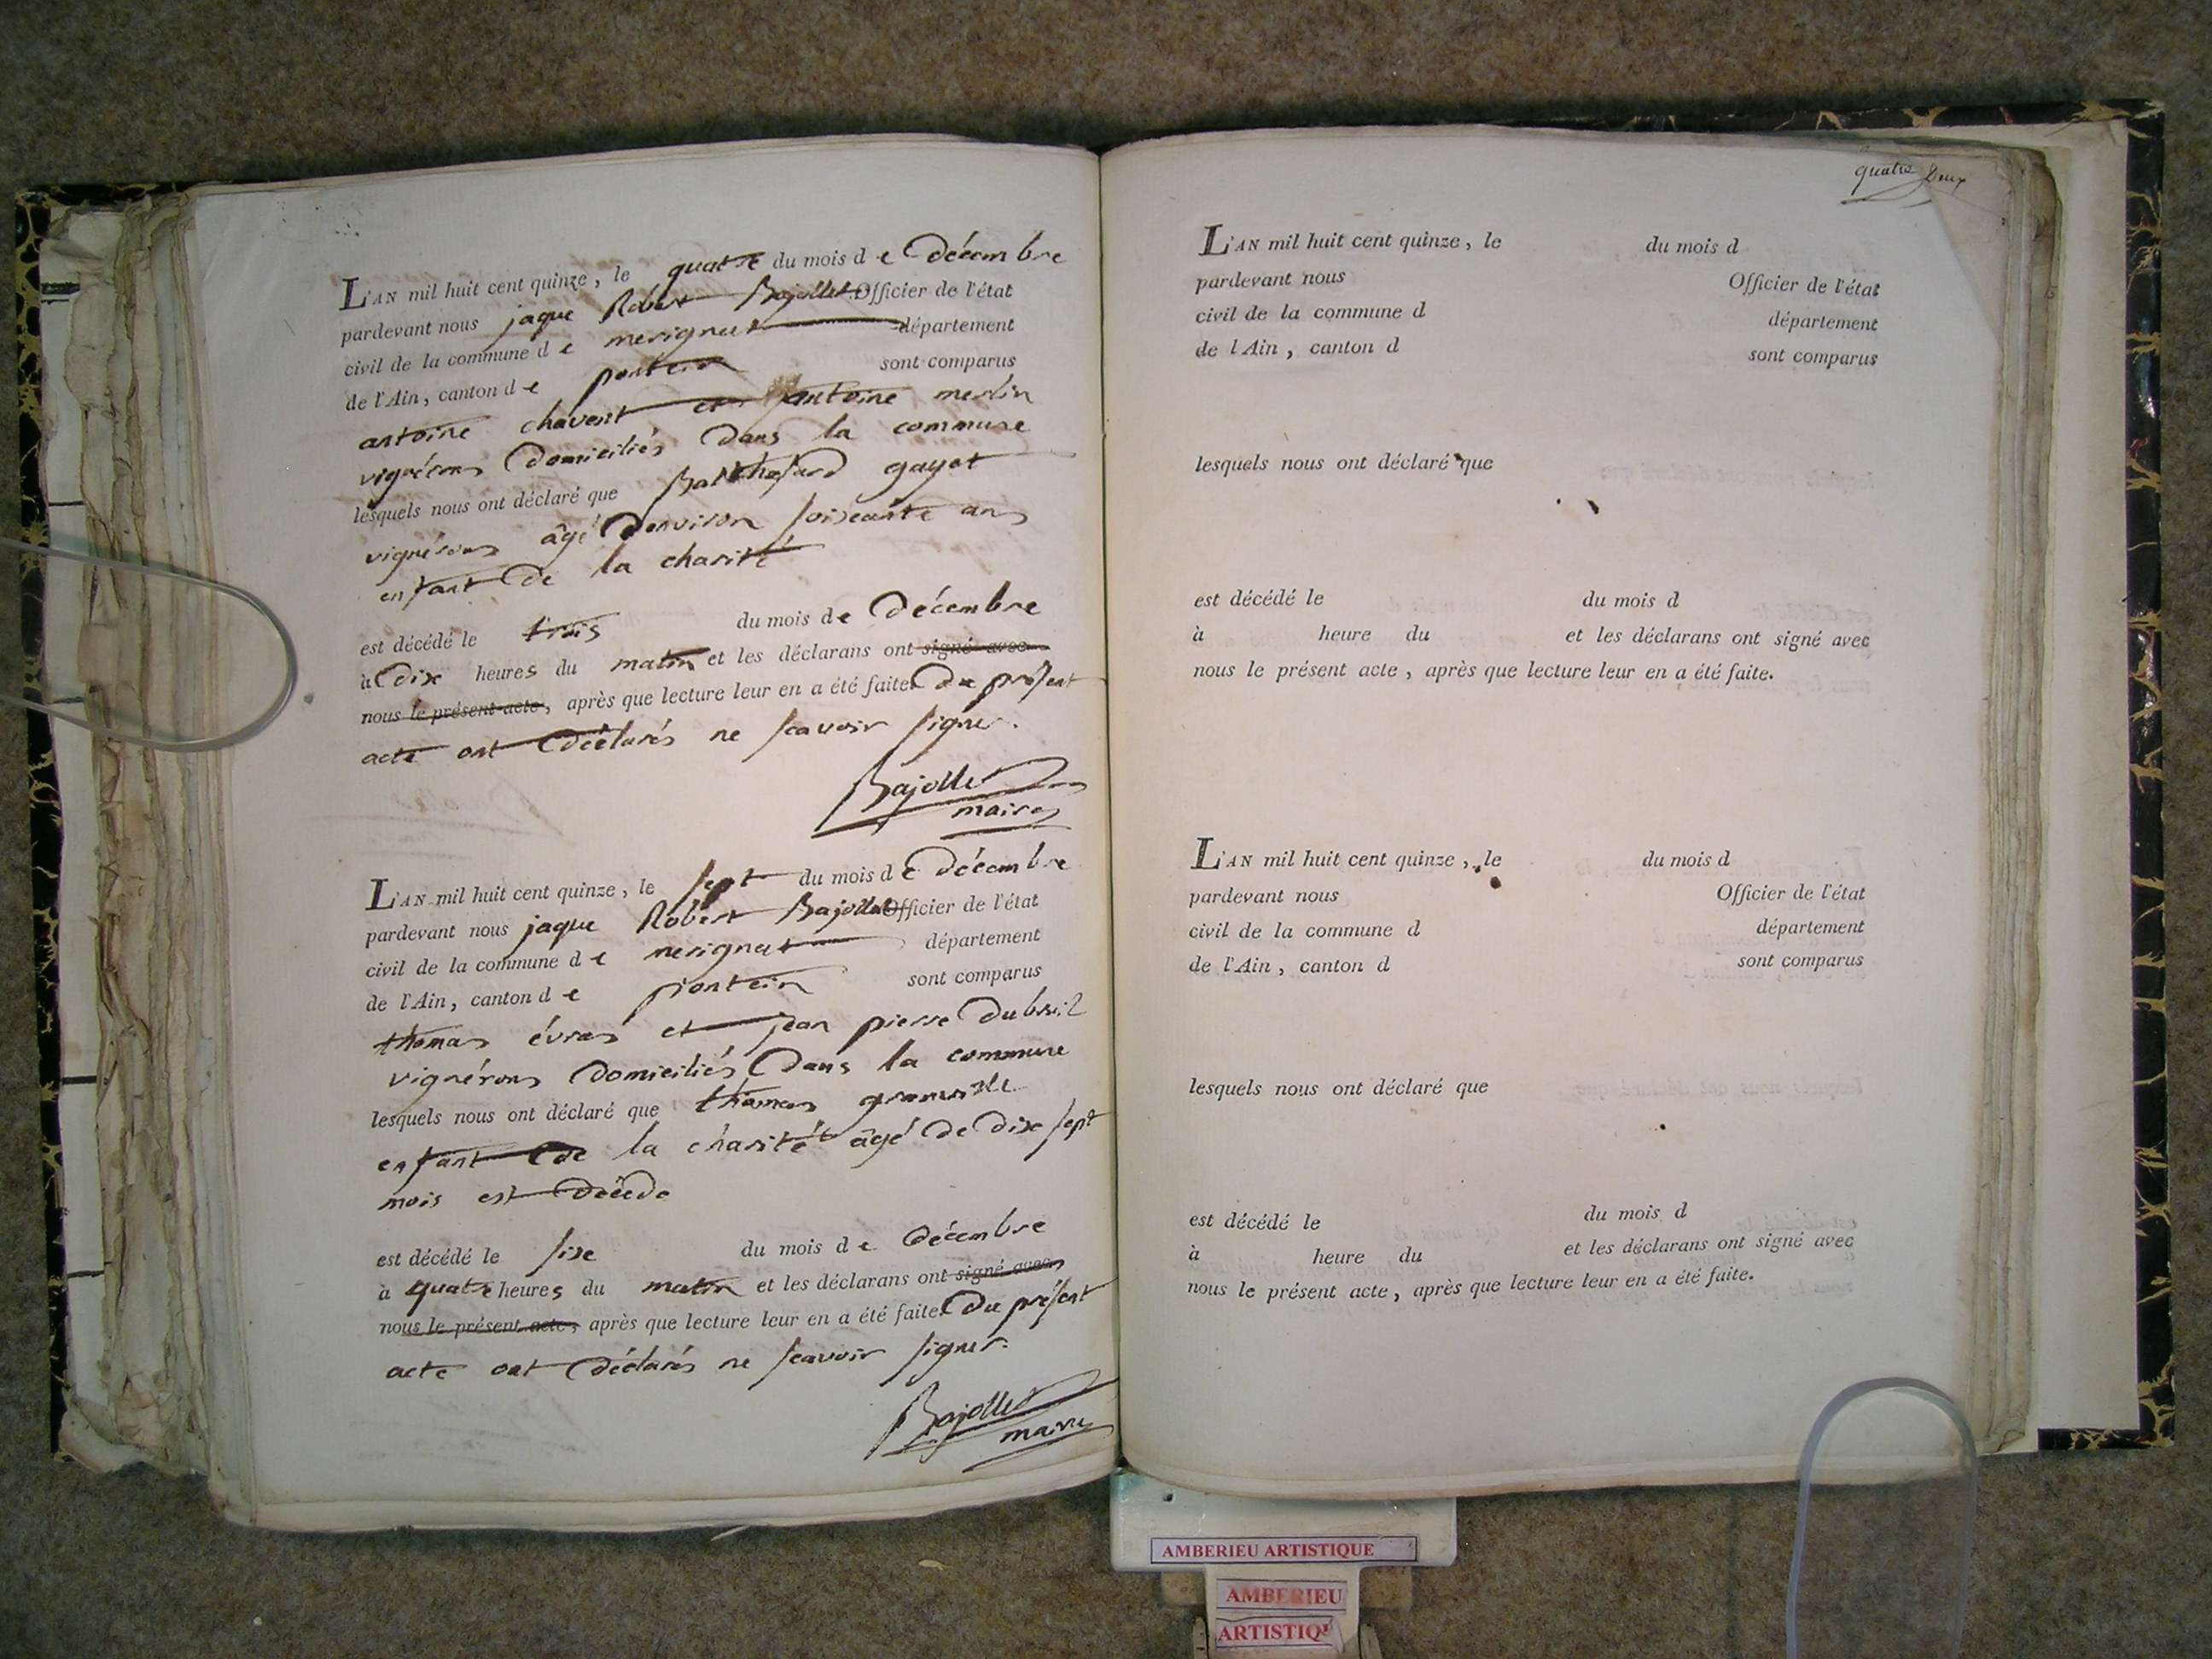 L'AN mil huit cent quinze, le quatre du mois de Décembre
pardevant nous jaque Robert Bajollet Officier de l'état
civil de la commune de merignat département
de l'Ain, canton de pontein sont comparus
antoine chavent et antoine merlin
vignérons Domiciliés Dans la commune
lesquels nous ont déclaré que gayot
vignérons âgé Denviron soixante ans
enfant De la charité
est décédé le trois du mois de Décembre
à Dix heures du matin et les déclarans ont signé avec
nous le présent acte, après que lecture leur en a été faite Du présent
acte ont Déclarés ne scavoir signer.
Bajollet
maire
L'AN mil huit cent quinze, le sept du mois de Décembre
pardevant nous jaque Robert Bajollet Officier de l'état
civil de la commune de merignat département
de l'Ain, canton de pontein sont comparus
thomas évras et jean pierre Dubreil
vignérons Domiciliés Dans la commune
lesquels nous ont déclaré que thomas
enfant De la charité âgé De Dix sept
mois est Décédé
est décédé le six du mois de Décembre
à quatre heures du matin et les déclarans ont signé avec
nous le présent acte, après que lecture leur en a été faite Du présent
acte ont Déclarés ne scavoir signer.
Bajollet
maire
quatre Deux
L'AN mil huit cent quinze, le du mois d
pardevant nous Officier de l'état
civil de la commune d département
de l'Ain, canton d sont comparus
lesquels nous ont déclaré que
est décédé le du mois d
à heure du et les déclarans ont signé avec
nous le présent acte, après que lecture leur en a été faite.
L'AN mil huit cent quinze, le du mois d
pardevant nous Officier de l'état
civil de la commune d département
de l'Ain, canton d sont comparus
lesquels nous ont déclaré que
est décédé le du mois d
à heure du et les déclarans ont signé avec
nous le présent acte, après que lecture leur en a été faite.
AMBERIEU ARTISTIQUE
AMBERIEU
ARTISTIQU